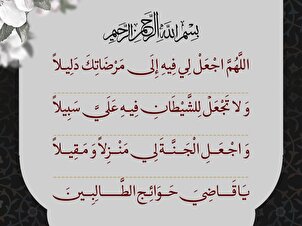 بِسْمِ اللَّهِ الرَّحْمَنِ الرَّحِيمِ
اللَّهُمَّ اجْعَلْ لِي فِيهِ إِلَى مَرْضَاتِكَ دَلِيلاً
وَلا تَجْعَلْ لِلشَّيْطَانِ فِيهِ عَلَيَّ سَبِيلاً
وَاجْعَلِ الْجَنَّةَ لِي مَنْزِلاً وَمَقِيلاً
يَا قَاضِيَ حَوَائِجِ الطَّالِبِينَ